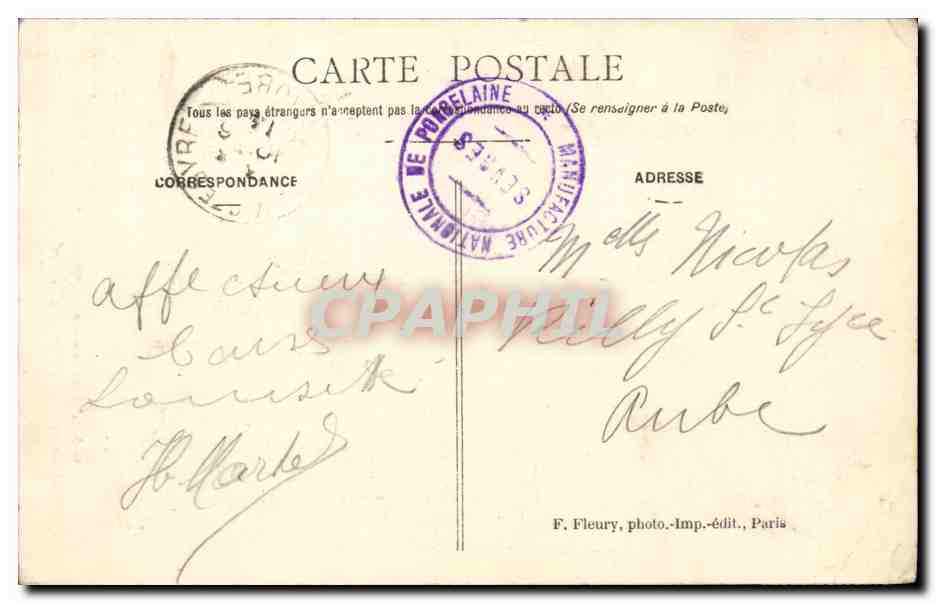 CARTE POSTALE
Tous les pays étrangers n'acceptent pas la correspondance au recto (Se renseigner à la Poste)
MANUFACTURE NATIONALE DE PORCELAINE
SEVRES
CORRESPONDANCE
ADRESSE
Affectueux
baisers
Louisette
H. Martel
Melle Nicolas
Rilly Ste Syre
Aube
CPAPHIL
F. Fleury, photo.-Imp.-édit., Paris